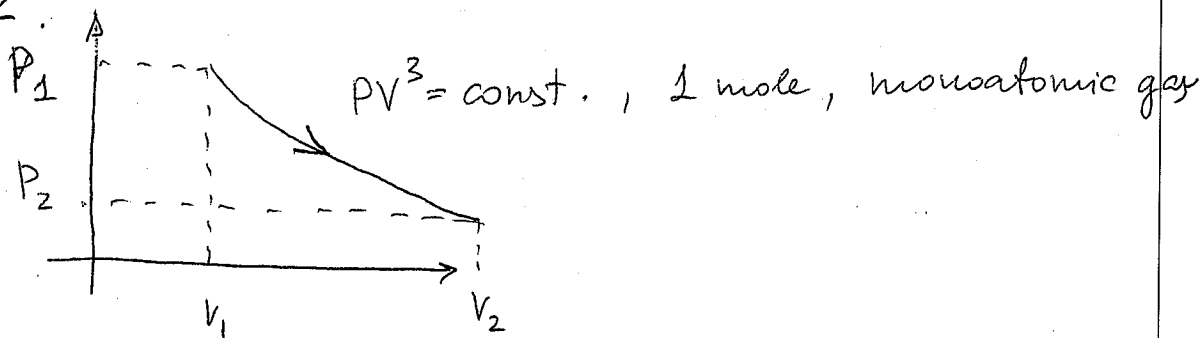 P₁
PV³ = const. , 1 mole, monoatomic gas
P₂
V₁
V₂